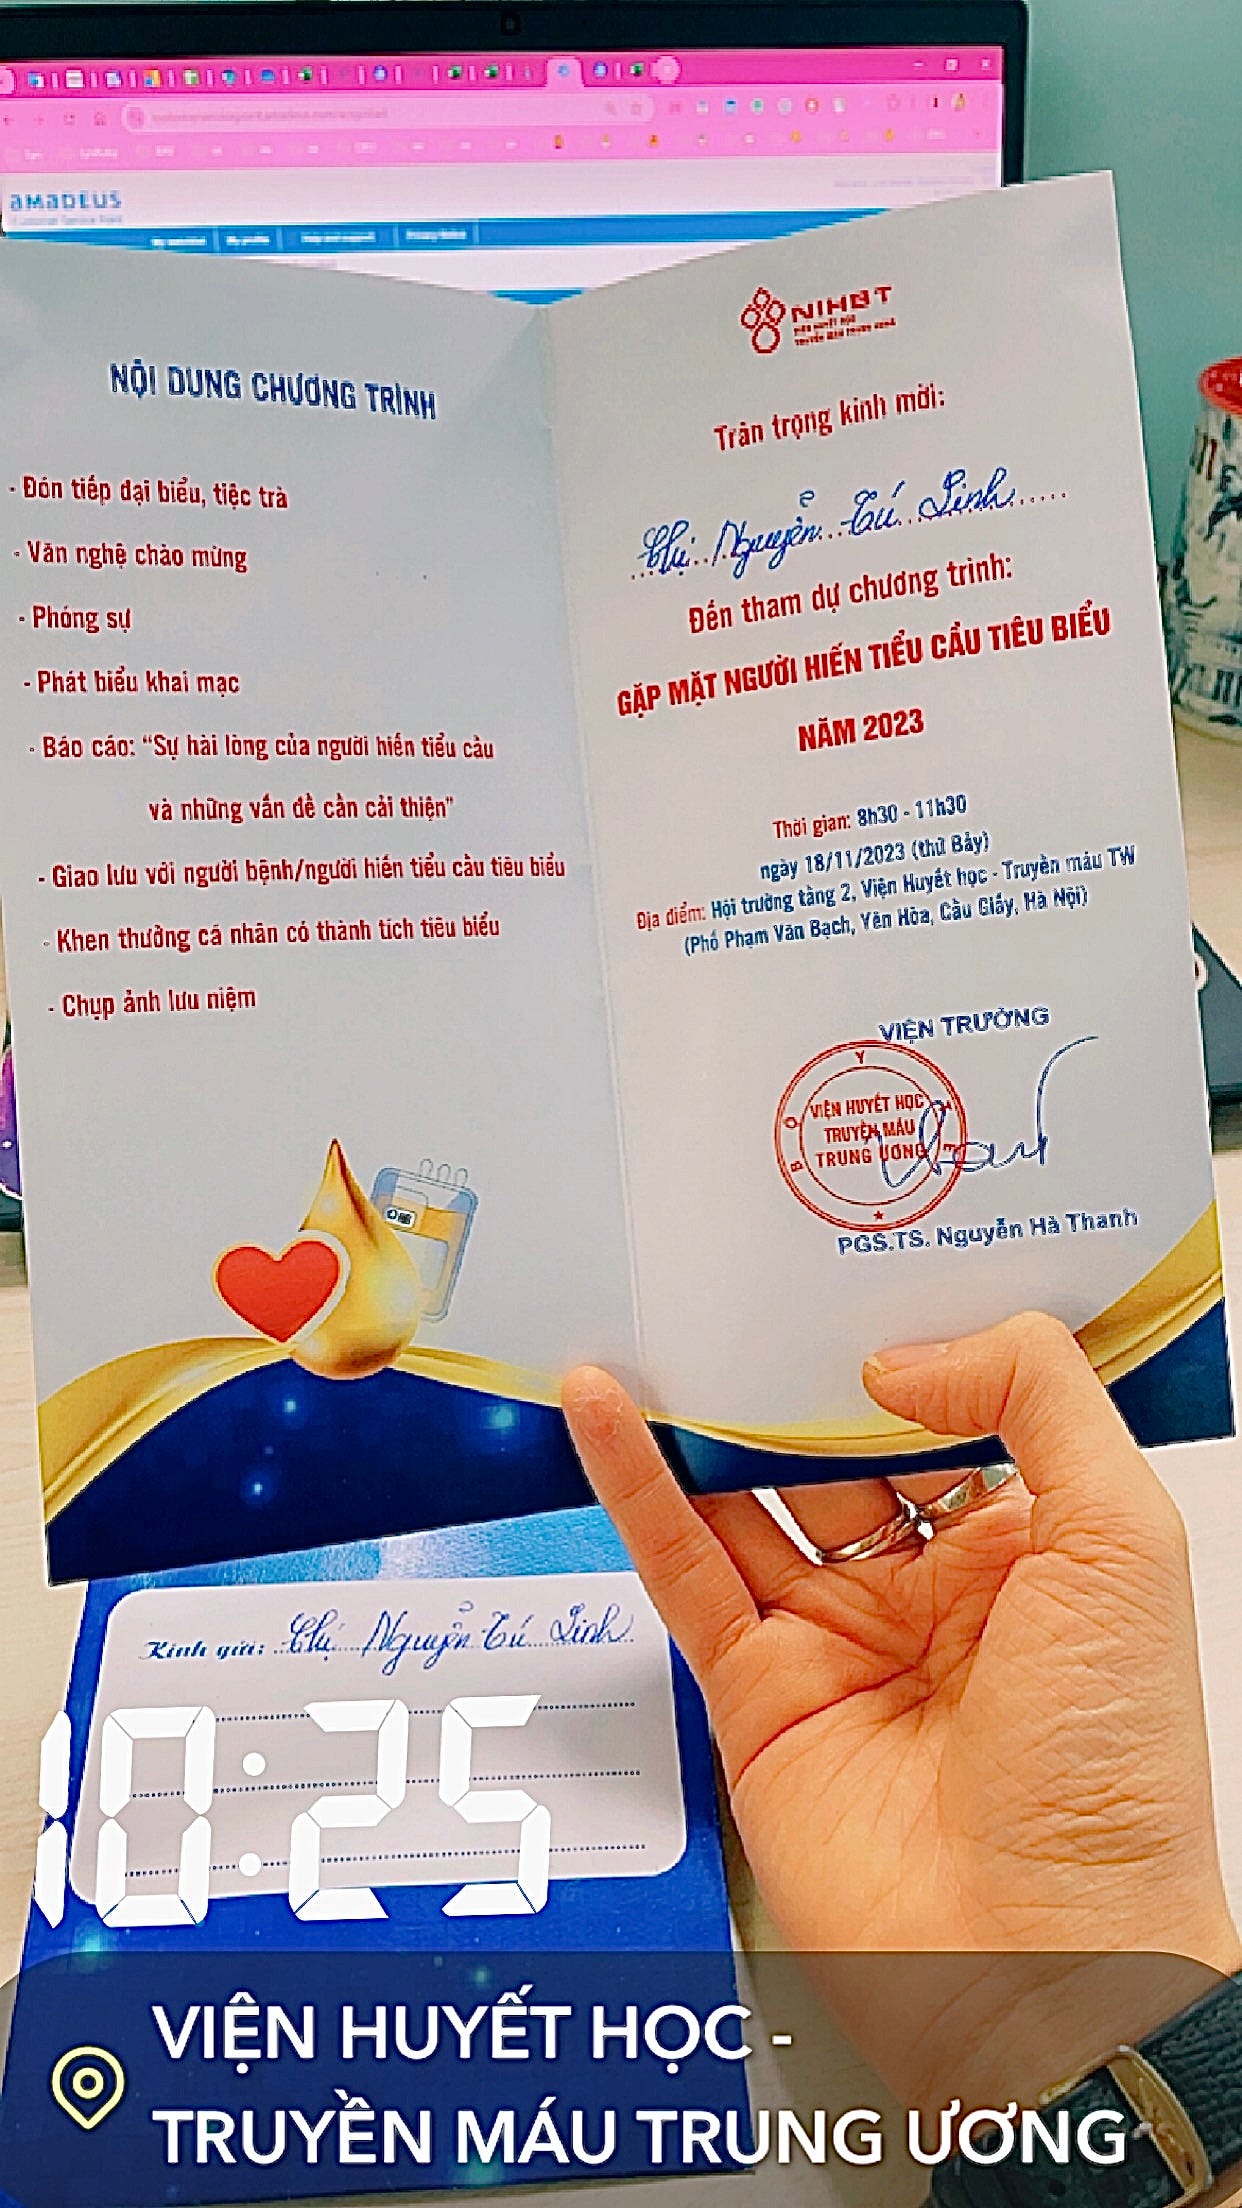 aMaDEUS
My profile
NỘI DUNG CHƯƠNG TRÌNH
- Đón tiếp đại biểu, tiệc trà
- Văn nghệ chào mừng
- Phóng sự
- Phát biểu khai mạc
- Báo cáo: “Sự hài lòng của người hiến tiểu cầu
và những vấn đề cần cải thiện”
- Giao lưu với người bệnh/người hiến tiểu cầu tiêu biểu
- Khen thưởng cá nhân có thành tích tiêu biểu
- Chụp ảnh lưu niệm
NIHBT
VIỆN HUYẾT HỌC
TRUYỀN MÁU TRUNG ƯƠNG
Trân trọng kính mời:
Chị Nguyễn Tú Linh
Đến tham dự chương trình:
GẶP MẶT NGƯỜI HIẾN TIỂU CẦU TIÊU BIỂU
NĂM 2023
Thời gian: 8h30 - 11h30
ngày 18/11/2023 (thứ Bảy)
Địa điểm: Hội trường tầng 2, Viện Huyết học - Truyền máu TW
(Phố Phạm Văn Bạch, Yên Hòa, Cầu Giấy, Hà Nội)
VIỆN TRƯỞNG
BỘ Y TẾ
VIỆN HUYẾT HỌC
TRUYỀN MÁU
TRUNG ƯƠNG
PGS.TS. Nguyễn Hà Thanh
Kính gửi: Chị Nguyễn Tú Linh
10:25
VIỆN HUYẾT HỌC -
TRUYỀN MÁU TRUNG ƯƠNG